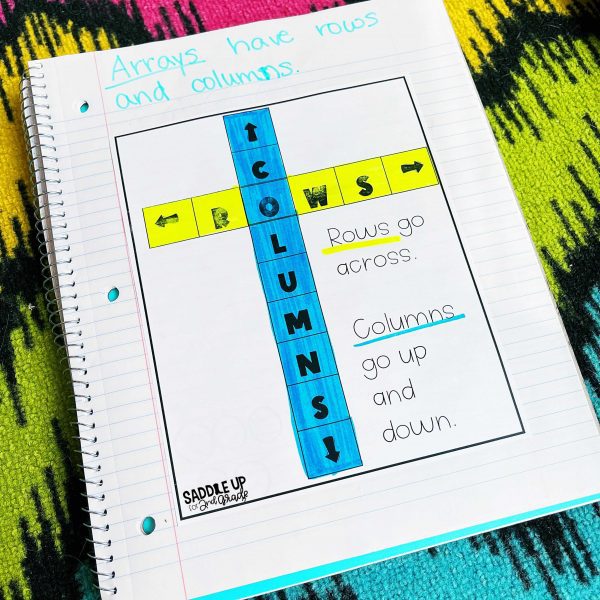 Arrays have rows
and columns.
↑ COLUMNS ↓
← ROWS →
Rows go
across.
Columns
go up
and
down.
SADDLE UP
for 2nd Grade